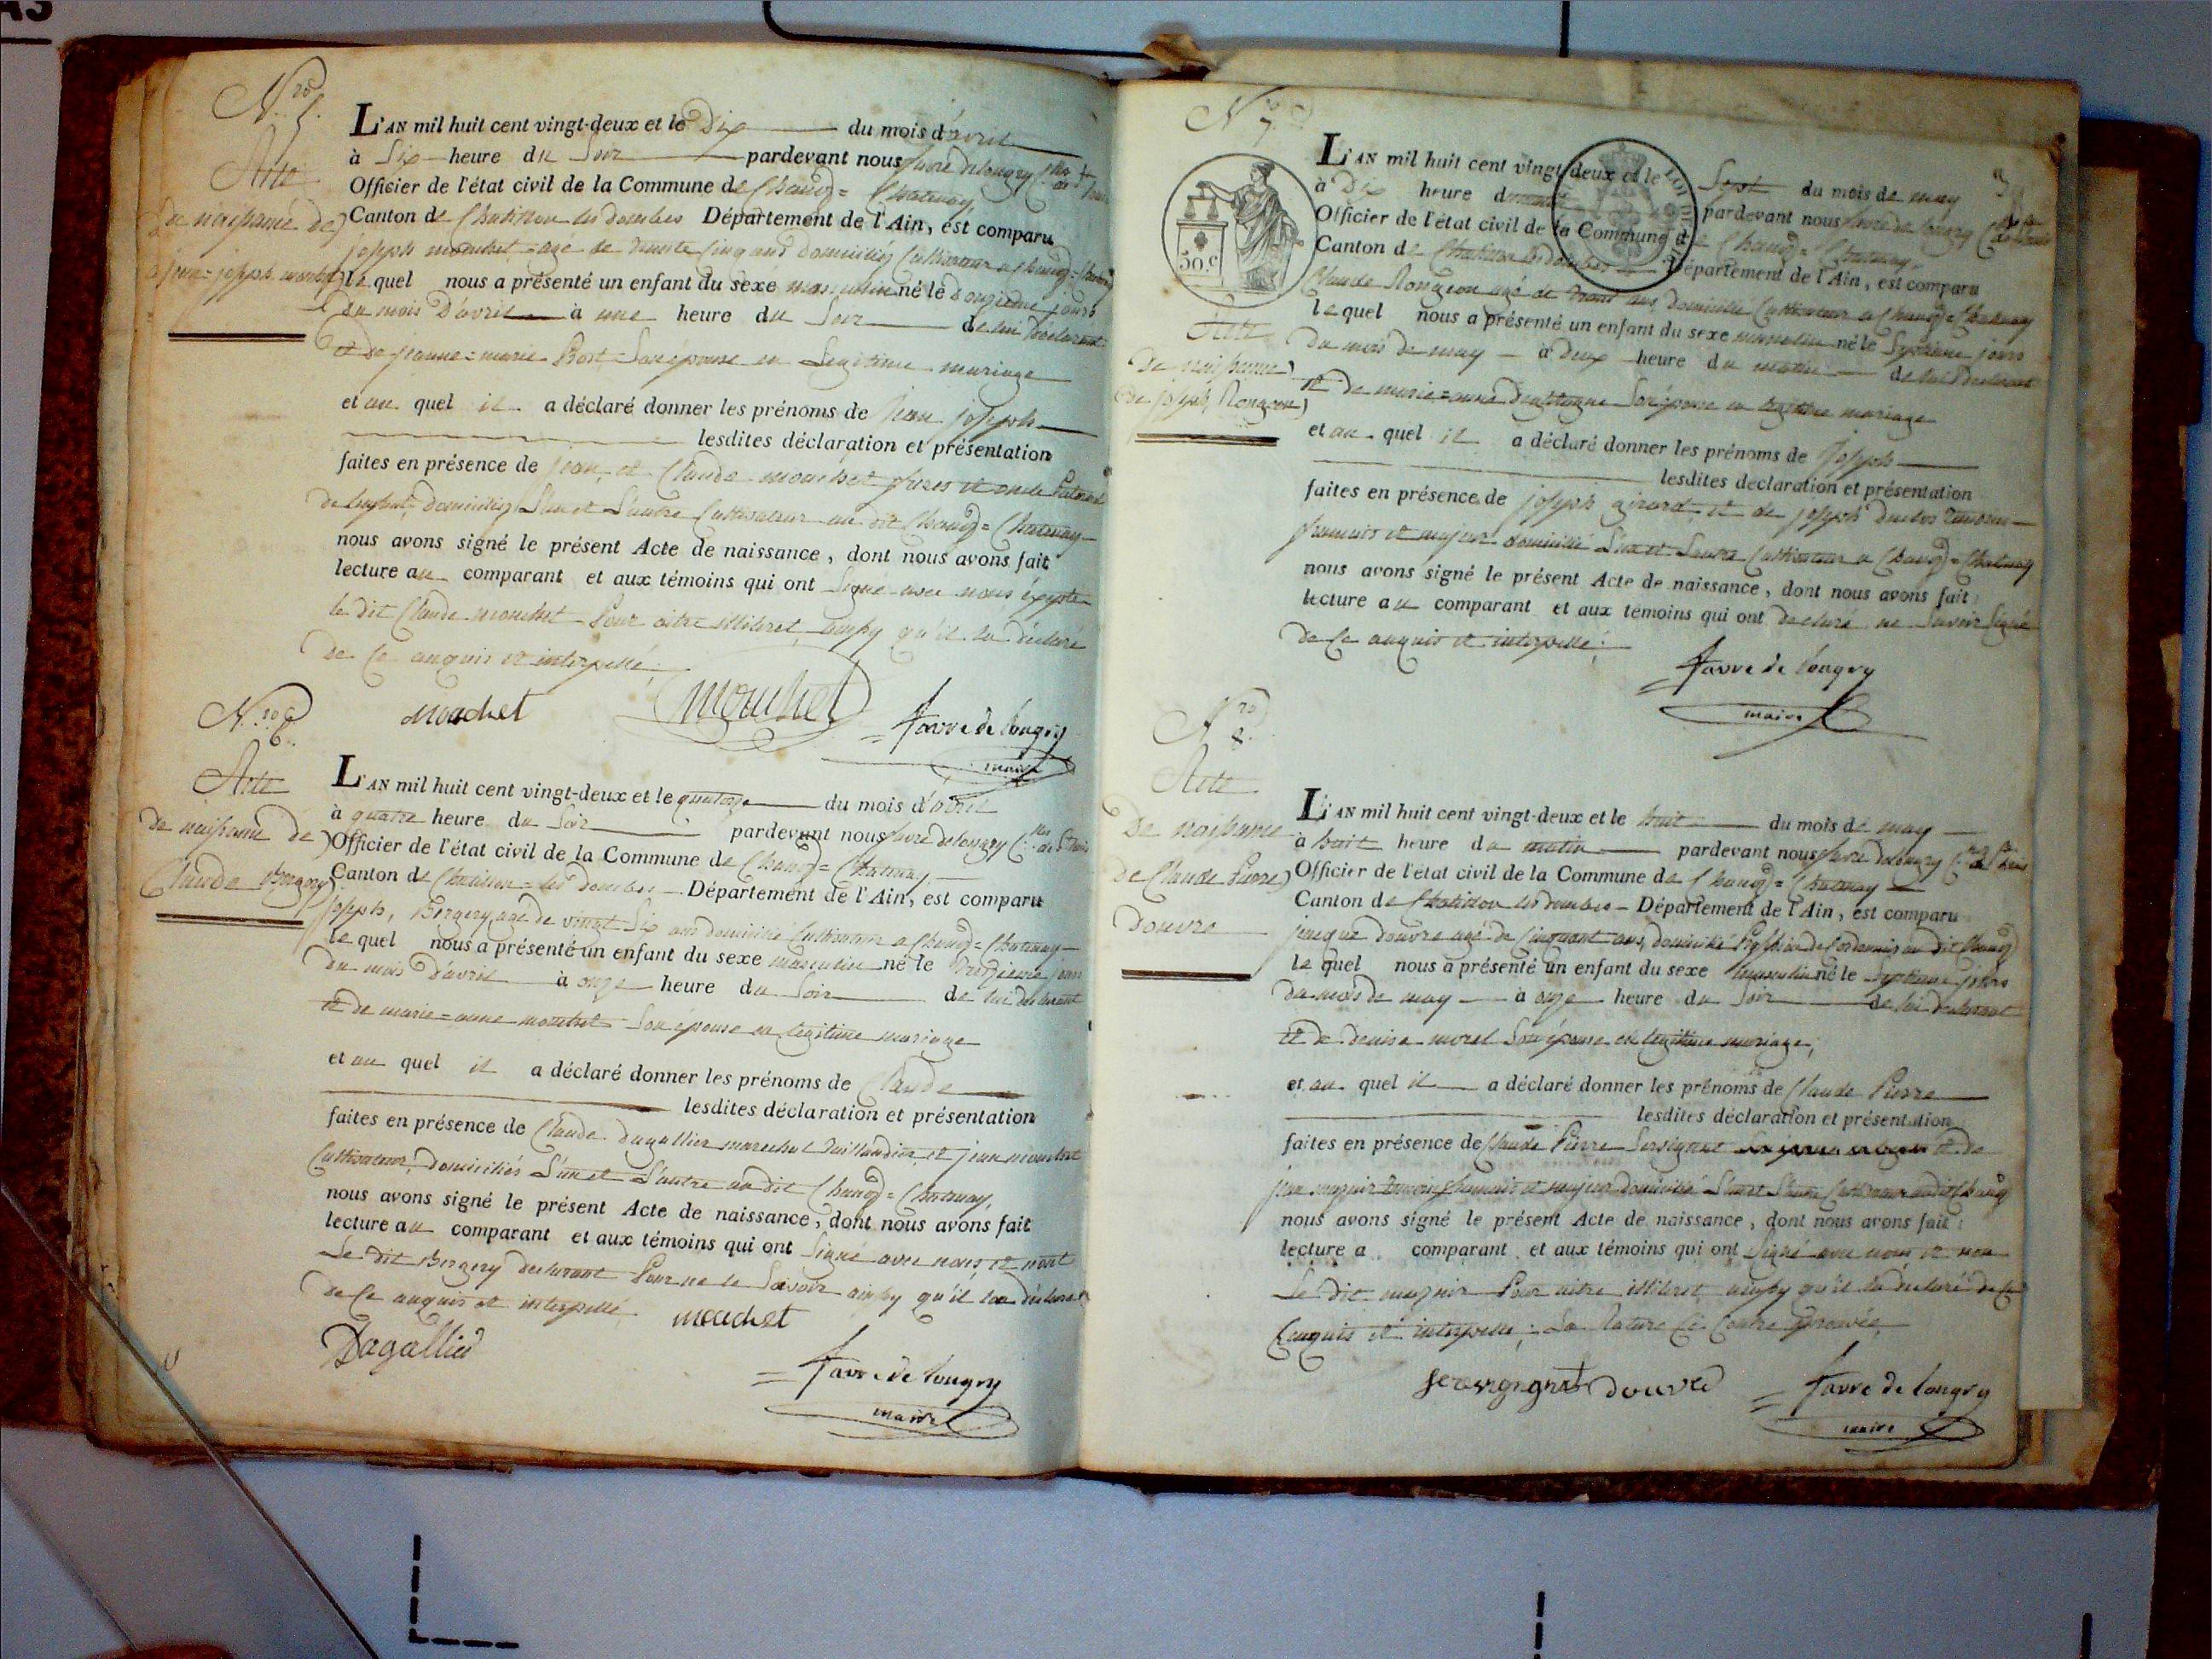 N.ro 5.
Acte
de naissance de
jean=joseph mouchet
L'AN mil huit cent vingt-deux et le Dix du mois d'avril
à Six heure du Soir pardevant nous favre delongry
Officier de l'état civil de la Commune de Chanoz=Chatenay
Canton de Chatillon les dombes Département de l'Ain, est comparu
joseph mouchet age de trente cinq ans domicilié Cultivateur a Chanoz=
le quel nous a présenté un enfant du sexe masculin né le jours
du mois D'avril à une heure du Soir de lui Declarant
et de jeanne=marie Bost Son epouse en Legitime mariage
et au quel il a déclaré donner les prénoms de jean joseph
lesdites déclaration et présentation
faites en présence de jean, et Claude mouchet freres et oncle Paternel
de l'enfant, domiciliés L'un et L'autre Cultivateur au dit Chanoz=Chatenay
nous avons signé le présent Acte de naissance, dont nous avons fait
lecture au comparant et aux témoins qui ont Signé avec nous éxepté
le dit Claude mouchet Pour aitre illiteret ainsy qu'il la déclaré
de Ce anquis et interpellé.
mouchet mouchet favre de longry
maire
N.ro 6.
Acte
de naissance de
Claude Bergery
L'AN mil huit cent vingt-deux et le quatorze du mois d'avril
à quatre heure du Soir pardevant nous favre delongry
Officier de l'état civil de la Commune de Chanoz=Chatenay
Canton de Chatillon=les dombes Département de l'Ain, est comparu
joseph, Bergery age de vingt Six ans domicilié Cultivateur a Chanoz=Chatenay
le quel nous a présenté un enfant du sexe masculin né le treizieme jour
du mois D'avril à onze heure du Soir de lui declarant
et de marie=anne mouchet Son épouse en legitime mariage
et au quel il a déclaré donner les prénoms de Claude
lesdites déclaration et présentation
faites en présence de Claude Dagallier marechal taillandier, et jean mouchet
Cultivateur, domiciliés L'un et L'autre au dit Chanoz=Chatenay,
nous avons signé le présent Acte de naissance, dont nous avons fait
lecture au comparant et aux témoins qui ont Signé avec nous et non
Le dit Bergery declarant Pour ne le Savoir ainsy qu'il la déclaré
de Ce anquis et interpellé mouchet
Dagallier
favre de longry
maire
N.ro 7.
50.c
Acte
De naissance
de joseph Rongeon
L'AN mil huit cent vingt-deux et le Sept du mois de may
à Dix heure du matin pardevant nous favre de longry
Officier de l'état civil de la Commune de Chanoz=Chatenay
Canton de Chatillon les dombes Département de l'Ain, est comparu
Claude Rongeon agé de trente ans, domicilié Cultivateur a Chanoz=Chatenay
le quel nous a présenté un enfant du sexe masculin né le Septieme jours
du mois de may à deux heure du matin de lui declarant
et de marie=anne Son épouse en legitime mariage
et au quel il a déclaré donner les prénoms de joseph
lesdites déclaration et présentation
faites en présence de joseph girard, et de joseph duclos temoins
francais et majeur domicilié L'un et Lautre Cultivateur a Chanoz=Chatenay
nous avons signé le présent Acte de naissance, dont nous avons fait
lecture au comparant et aux témoins qui ont declaré ne Savoir Signé
de Ce anquis et interpellé.
favre de longry
maire
N.ro 8.
Acte
De naissance
de Claude Pierre
Douvre
L'AN mil huit cent vingt-deux et le huit du mois de may
à huit heure du matin pardevant nous favre delongry
Officier de l'état civil de la Commune de Chanoz=Chatenay
Canton de Chatillon les dombes Département de l'Ain, est comparu
jacque douvre agé de Cinquant ans, domicilié au dit Chanoz
le quel nous a présenté un enfant du sexe masculin né le Septieme jours
du mois de may à onze heure du Soir de lui declarant
et de denise morel Son épouse en legitime mariage,
et au quel il a déclaré donner les prénoms de Claude Pierre
lesdites déclaration et présentation
faites en présence de Claude Pierre Servignat et de
jean temoin francais et majeur domicilié L'un et L'autre Cultivateur audit Chanoz
nous avons signé le présent Acte de naissance, dont nous avons fait
lecture a comparant et aux témoins qui ont Signé avec nous, et non
Le dit Pour aitre illiteret ainsy qu'il la declaré de Ce
Enquis et interpellé; La Rature Ci Contre aprouvée,
servignat Douvre favre de longry
maire